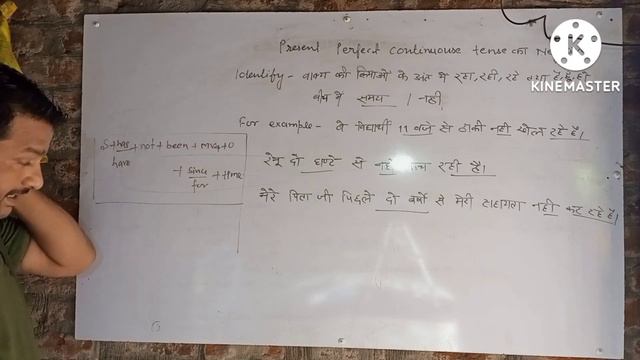 Present Perfect continuouse tense का N
KINEMASTER
Identify - वाक्य की क्रियाओं के अंत में रहा, रही, रहे तथा है, हैं, हो
बीच में समय / नही
For example - वे विद्यार्थी 11 बजे से हाकी नही खेल रहे है।
रेनू दो घण्टे से नही रही है।
मेरे पिता जी पिछले दो वर्षो से मेरी सहायता नही कर रहे है।
S + has + not + been + mv4 + O
have
+ since + time
for